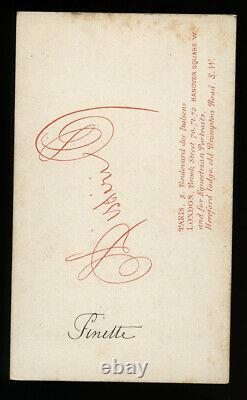 Disdéri
PARIS, 8. Boulevard des Italiens
LONDON, Brook Street 70,71,72 HANOVER SQUARE W.
and for Equestrian Portraits,
Hereford lodge, old Brompton Road, S.W.
Finette